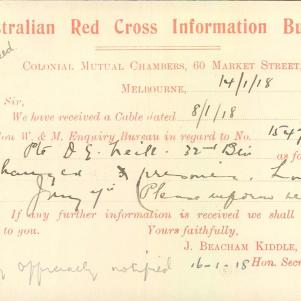 stralian Red Cross Information Bu
Colonial Mutual Chambers, 60 Market Street,
Melbourne, 14/1/18
Sir,
We have received a Cable dated 8/1/18
on W. & M. Enquiry Bureau in regard to No. 154
Pte D. G. Neill. 32nd Btn as fo
changed prisoner,
Please inform
If any further information is received we shall
to you. Yours faithfully,
J. Beacham Kiddle,
notified
16-1-18 Hon. Secr